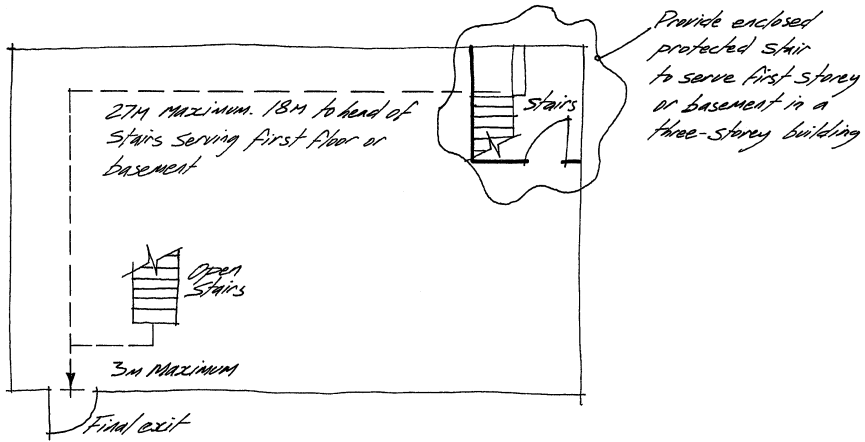 Provide enclosed
protected stair
to serve first storey
or basement in a
three-storey building
Stairs
27M maximum. 18M to head of
stairs serving first floor or
basement
Open
Stairs
3M maximum
Final exit